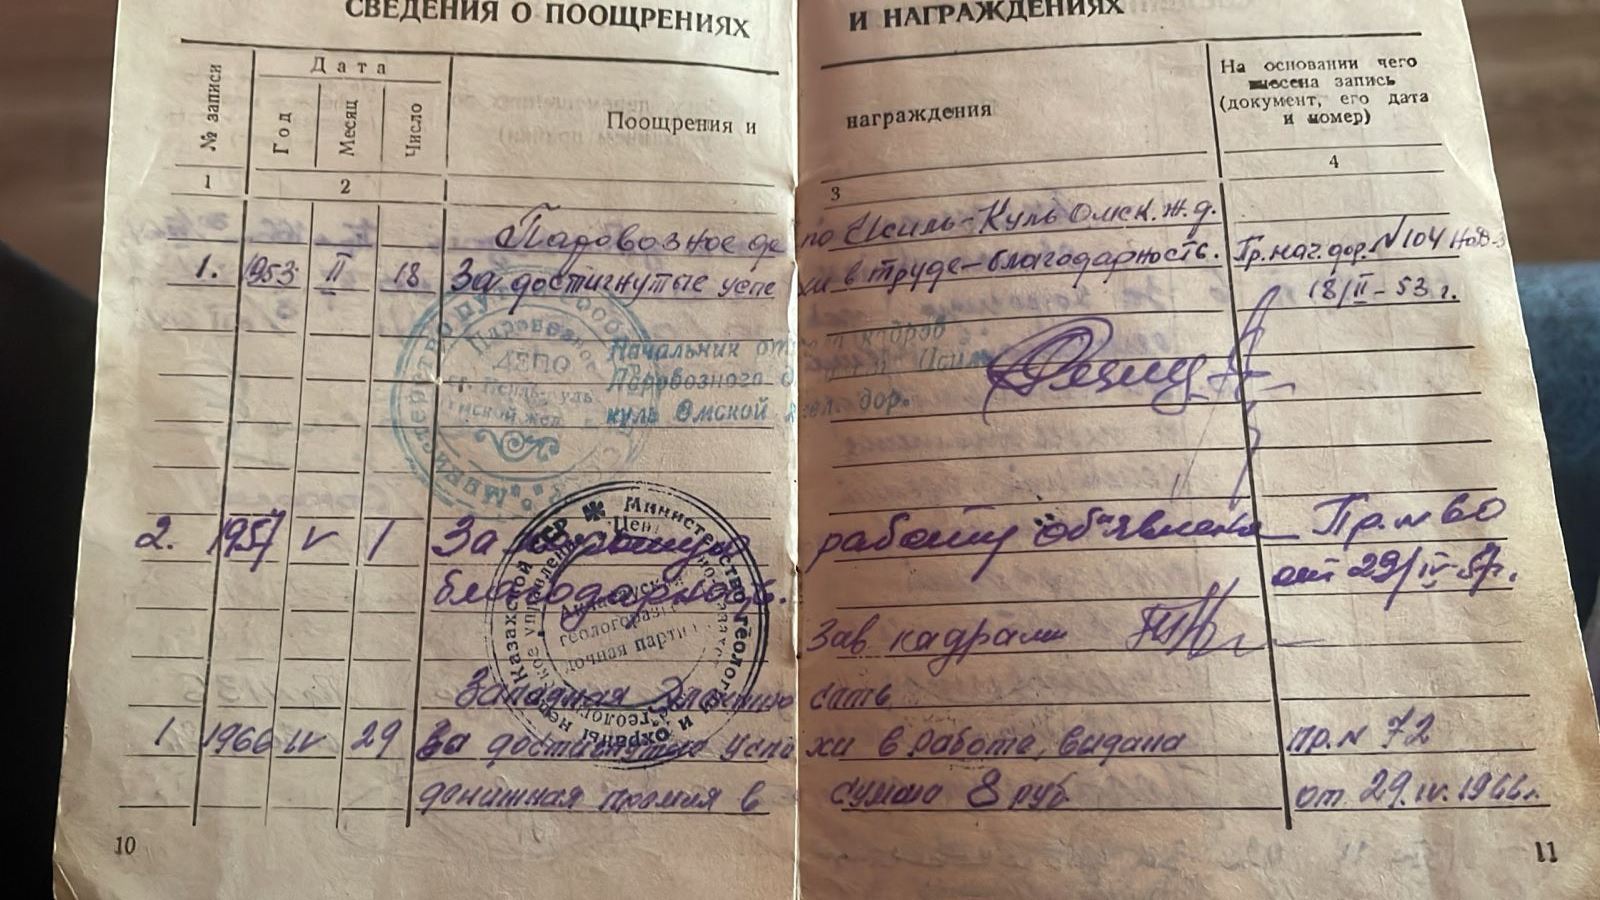 СВЕДЕНИЯ О ПООЩРЕНИЯХ И НАГРАЖДЕНИЯХ
№ записи
Дата
Год
Месяц
Число
Поощрения и награждения
На основании чего внесена запись (документ, его дата и номер)
1 2 3 4
Паровозное депо Исиль-Куль Омск. ж.д.
1. 1953 II 18 За достигнутые успехи в труде-благодарность. Пр. нач. дор. N104
18/II-53 г.
Министерство путей сообщ
Паровозное
ДЕПО
ст. Исиль-Куль
Омской жел.
Начальник отдела кадров
Паровозного д Исиль
куль Омской жел. дор.
2. 1957 V 1 За хорошую работу объявлена Пр. №
благодарность. от 29/IV-57г.
Министерство геологии и охраны недр Казахской ССР
геологоразведочная партия
Зав кадрами
Западная
1 1966 IV 29 За достигнутые успехи в работе выдана пр. N 72
денежная премия в сумме 8 руб от 29.IV.1966г.
10
11